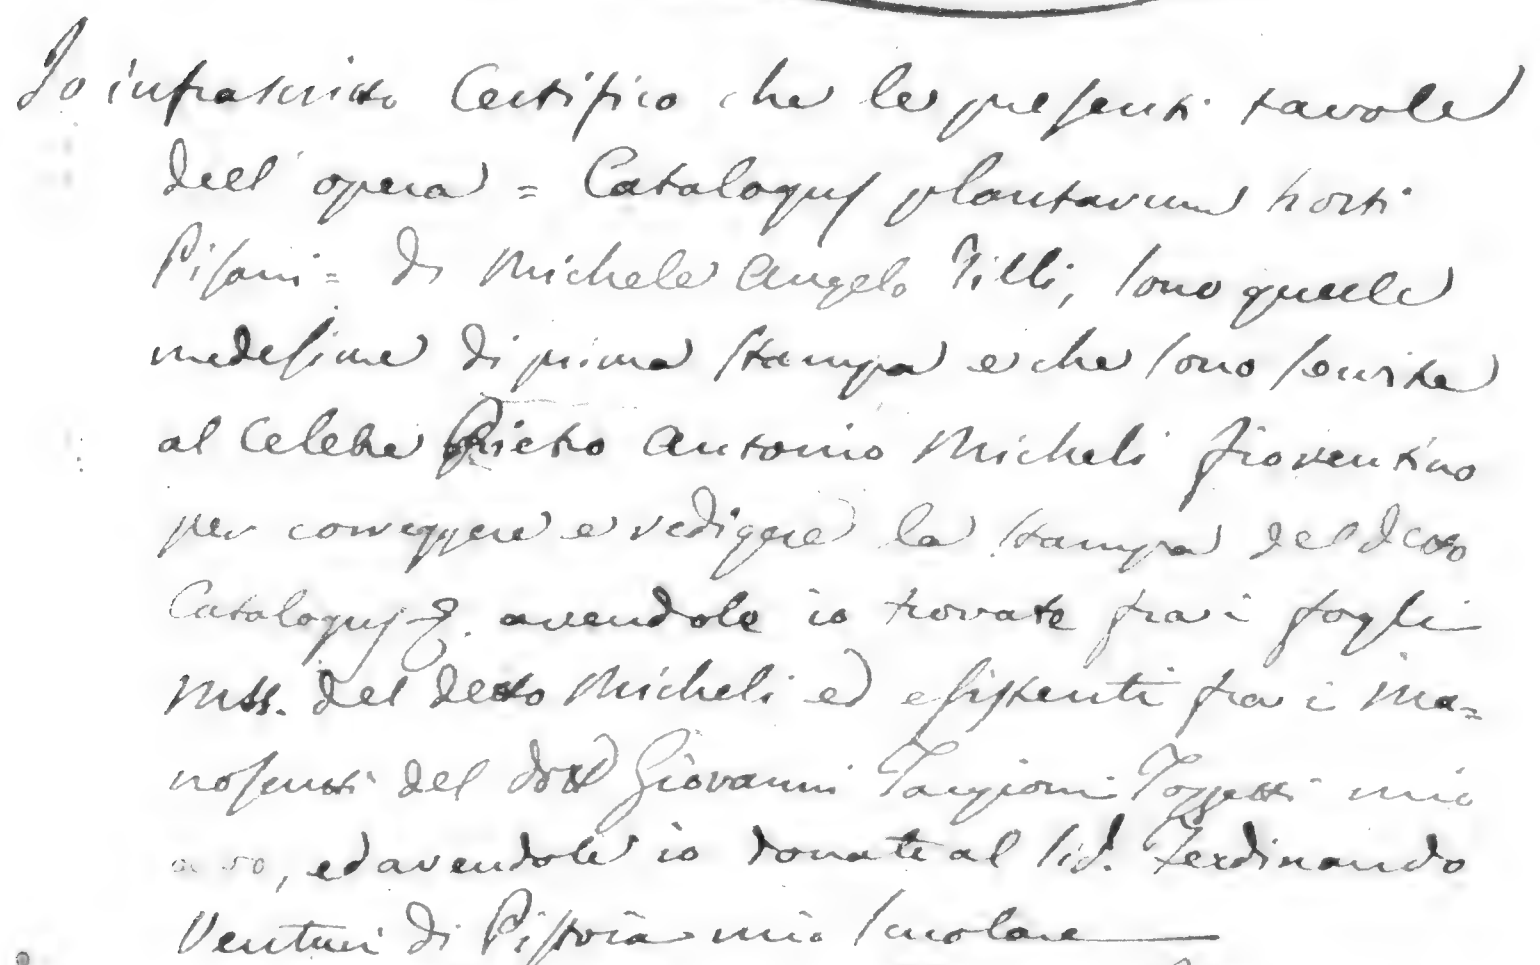 Io infrascritto Certifico che le presenti tavole
dell'opera = Catalogus plantarum horti
Pisani = di Michele Angelo Tilli, sono quelle
medesime di prima stampa e che sono servite
al celebre Pietro Antonio Micheli fiorentino
per correggere e redigere la stampa del detto
Catalogus &. avendole io trovate fra i fogli
mss. del detto Micheli ed esistenti fra i ma=
noscritti del dott Giovanni Targioni Tozzetti mio
avo, ed avendole io donate al Sid. Ferdinando
Venturi di Pistoia mio scolare